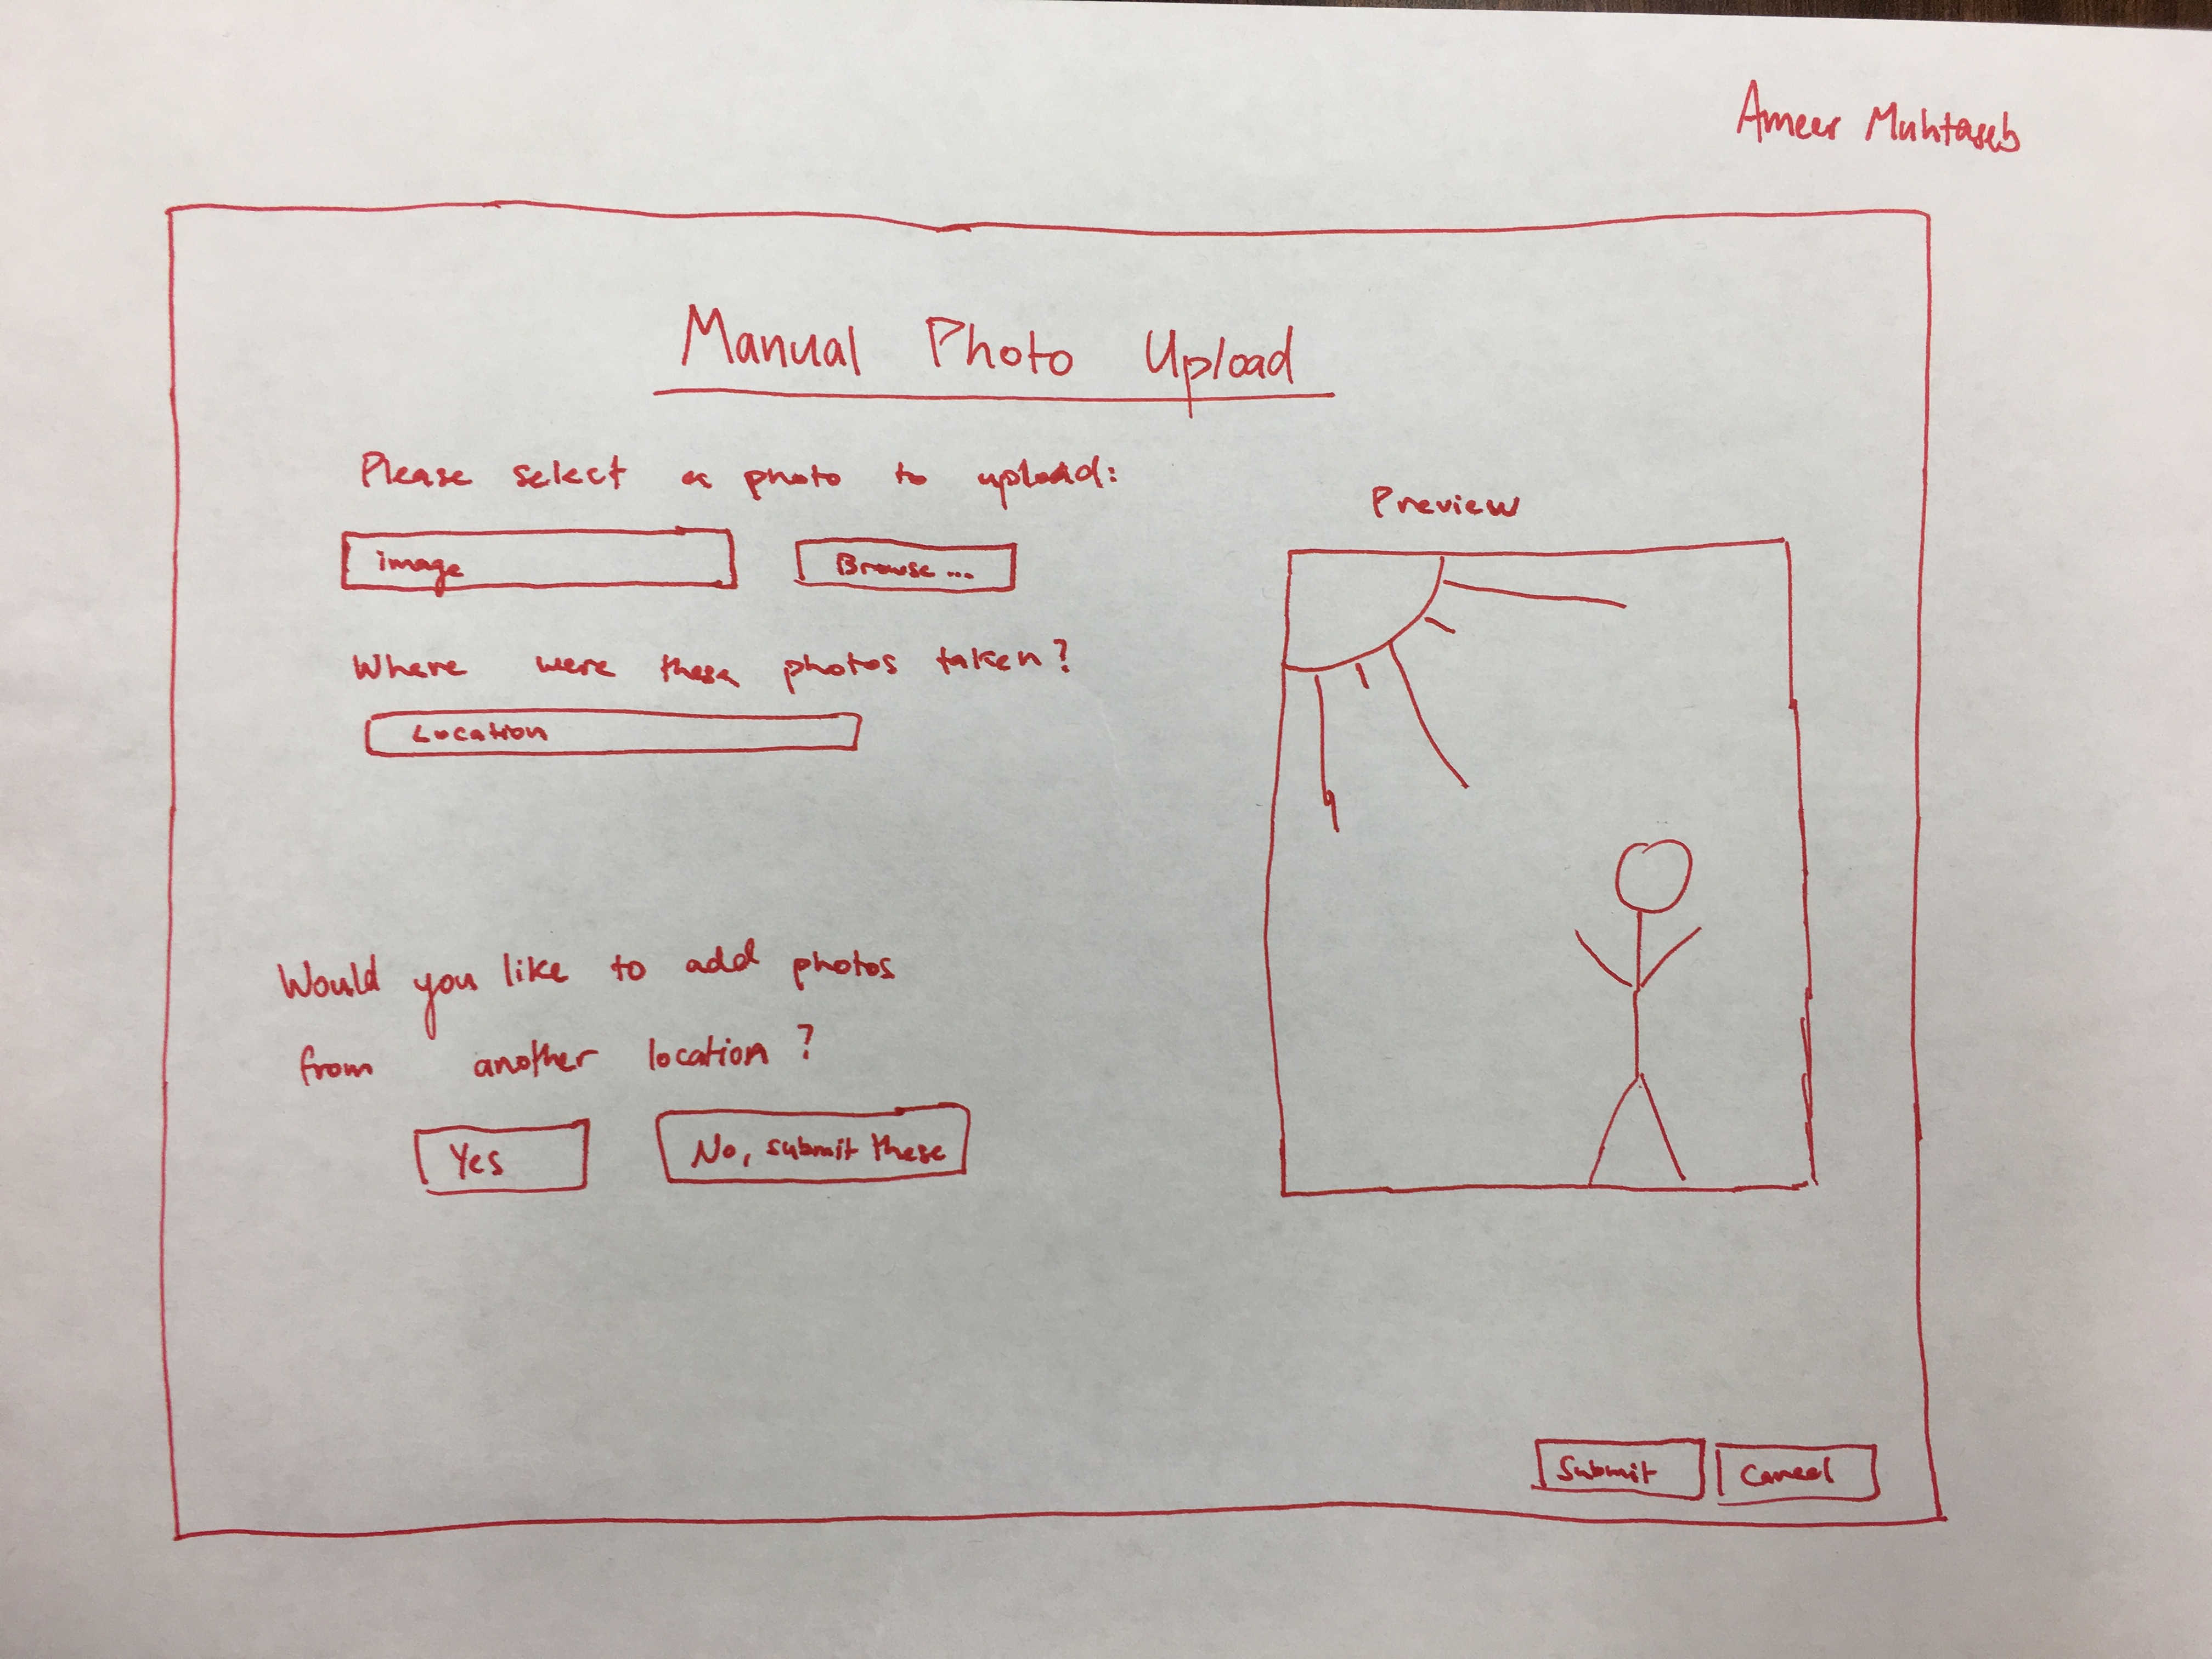 Ameer Muhtaseb
Manual Photo Upload
Please select a photo to upload:
image
Browse...
Where were these photos taken?
Location
Would you like to add photos
from another location?
Yes
No, submit these
Preview
Submit
Cancel